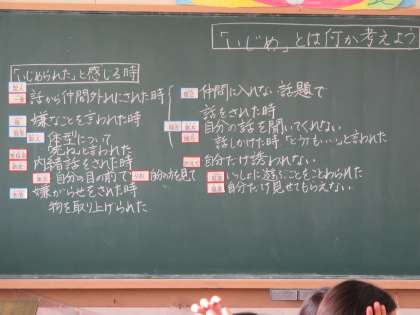 「いじめ」とは何か考えよう
「いじめられた」と感じる時
話から仲間外れにされた時
嫌なことを言われた時
体型について
内緒話をされた時
自分の目の前で
の方を見て
嫌がらせをされた時
物を取り上げられた
仲間に入れない話題で
話をされた時
自分の話を聞いてくれない
話しかけた時
と言われた
自分だけ誘われない
いっしょに遊ぶことをことわられた
自分だけ見せてもらえない